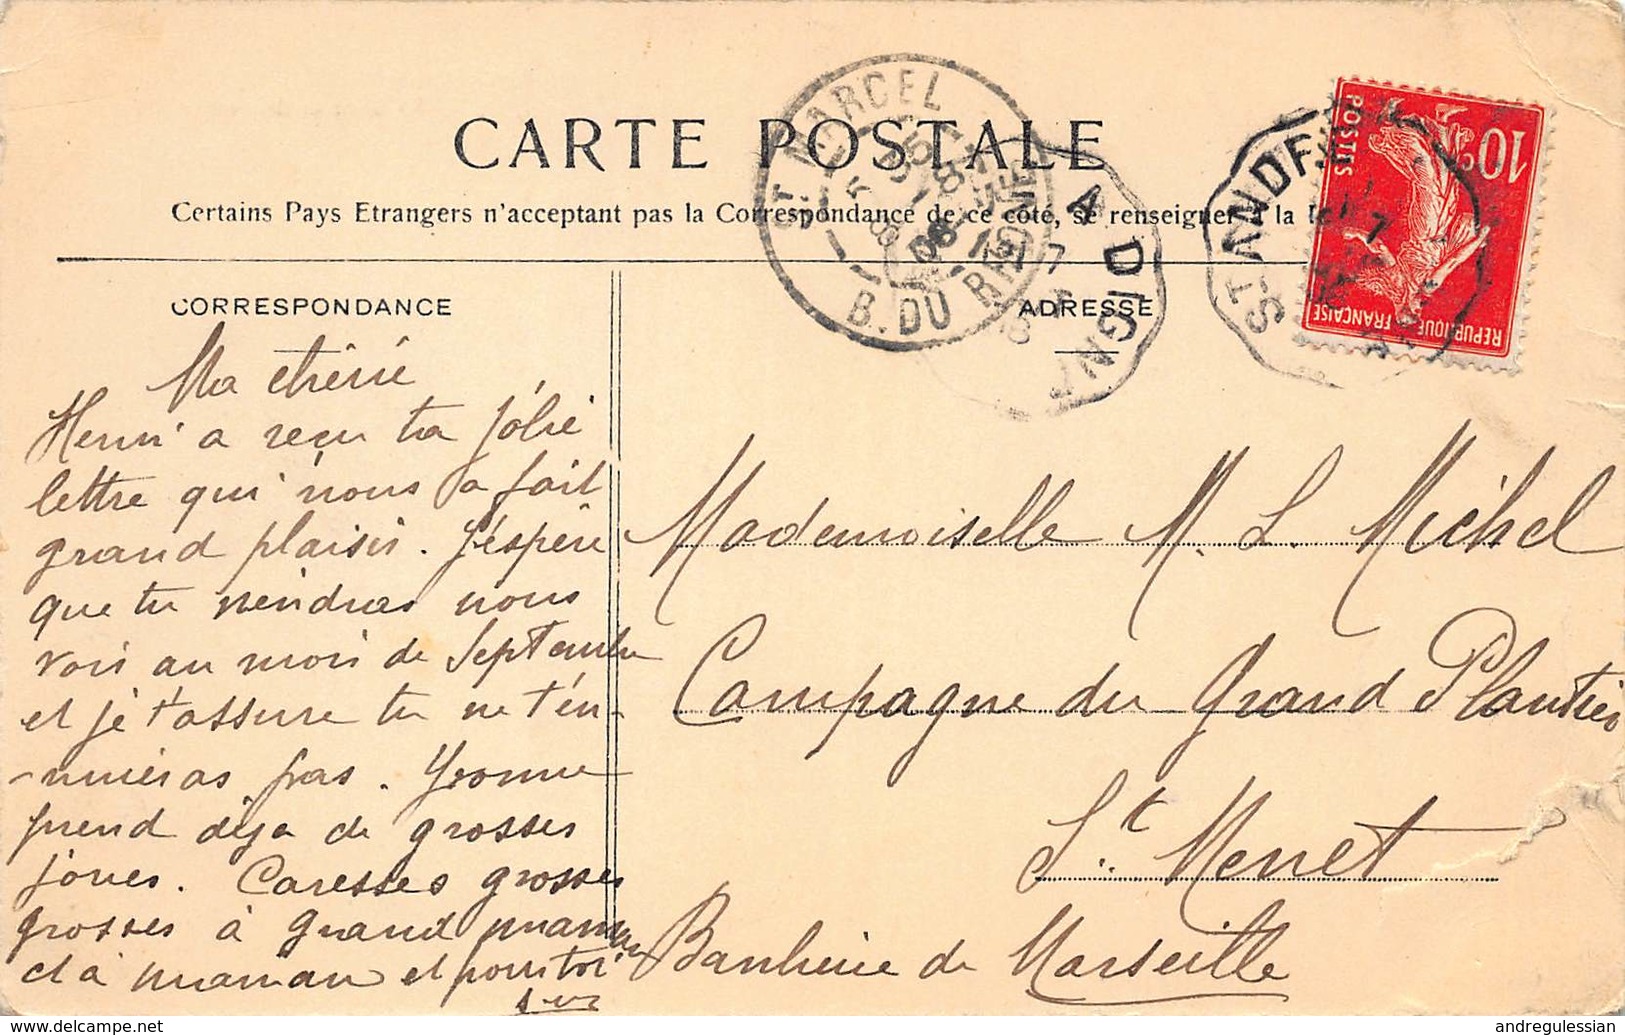 CARTE POSTALE
Certains Pays Etrangers n'acceptant pas la Correspondance de ce côté, se renseigner à la
CORRESPONDANCE
Ma chérie
Henri a reçu ta jolie
lettre qui nous a fait
grand plaisir. J'éspère
que tu viendras nous
voir au mois de Septembre
et je t'assure tu ne t'én-
-nuieras pas. Yvonne
prend déja de grosses
joues. Caresses grosses
grosses à grand maman
et à maman et pour toi
ADRESSE
Mademoiselle M. L. Michel
Campagne du Grand Plantier
St. Menet
Banlieue de Marseille
ST MARCEL
B. DU RHONE
08
A DIGNE
ST ANDRE
10c
POSTES
REPUBLIQUE FRANÇAISE
www.delcampe.net
andregulessian